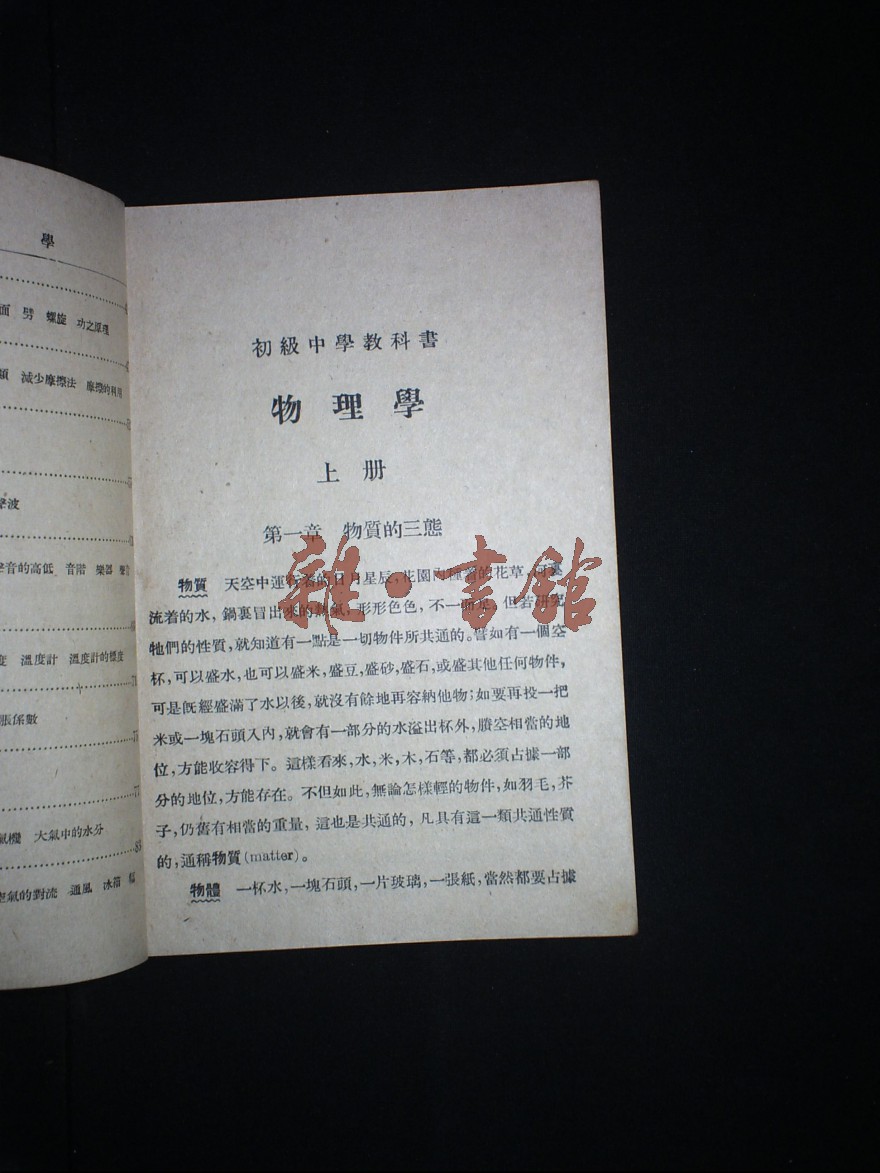 學
面 劈 螺旋 功之原理
減少摩擦法 摩擦的利用
聲波
聲音的高低 音階 樂器
溫度計 溫度計的標度
脹係數
大氣中的水分
空氣的對流 通風 冰箱
初級中學教科書
物理學
上册
第一章 物質的三態
物質 天空中運行着的日月星辰,花園內種着的花草,河裏
流着的水,鍋裏冒出來的熱氣,形形色色,不一而足。但若研究
牠們的性質,就知道有一點是一切物件所共通的。譬如有一個空
杯,可以盛水,也可以盛米,盛豆,盛砂,盛石,或盛其他任何物件,
可是旣經盛滿了水以後,就沒有餘地再容納他物;如要再投一把
米或一塊石頭入內,就會有一部分的水溢出杯外,賸空相當的地
位,方能收容得下。這樣看來,水,米,木,石等,都必須占據一部
分的地位,方能存在。不但如此,無論怎樣輕的物件,如羽毛,芥
子,仍舊有相當的重量,這也是共通的,凡具有這一類共通性質
的,通稱物質(matter)。
物體 一杯水,一塊石頭,一片玻璃,一張紙,當然都要占據
雜·書館